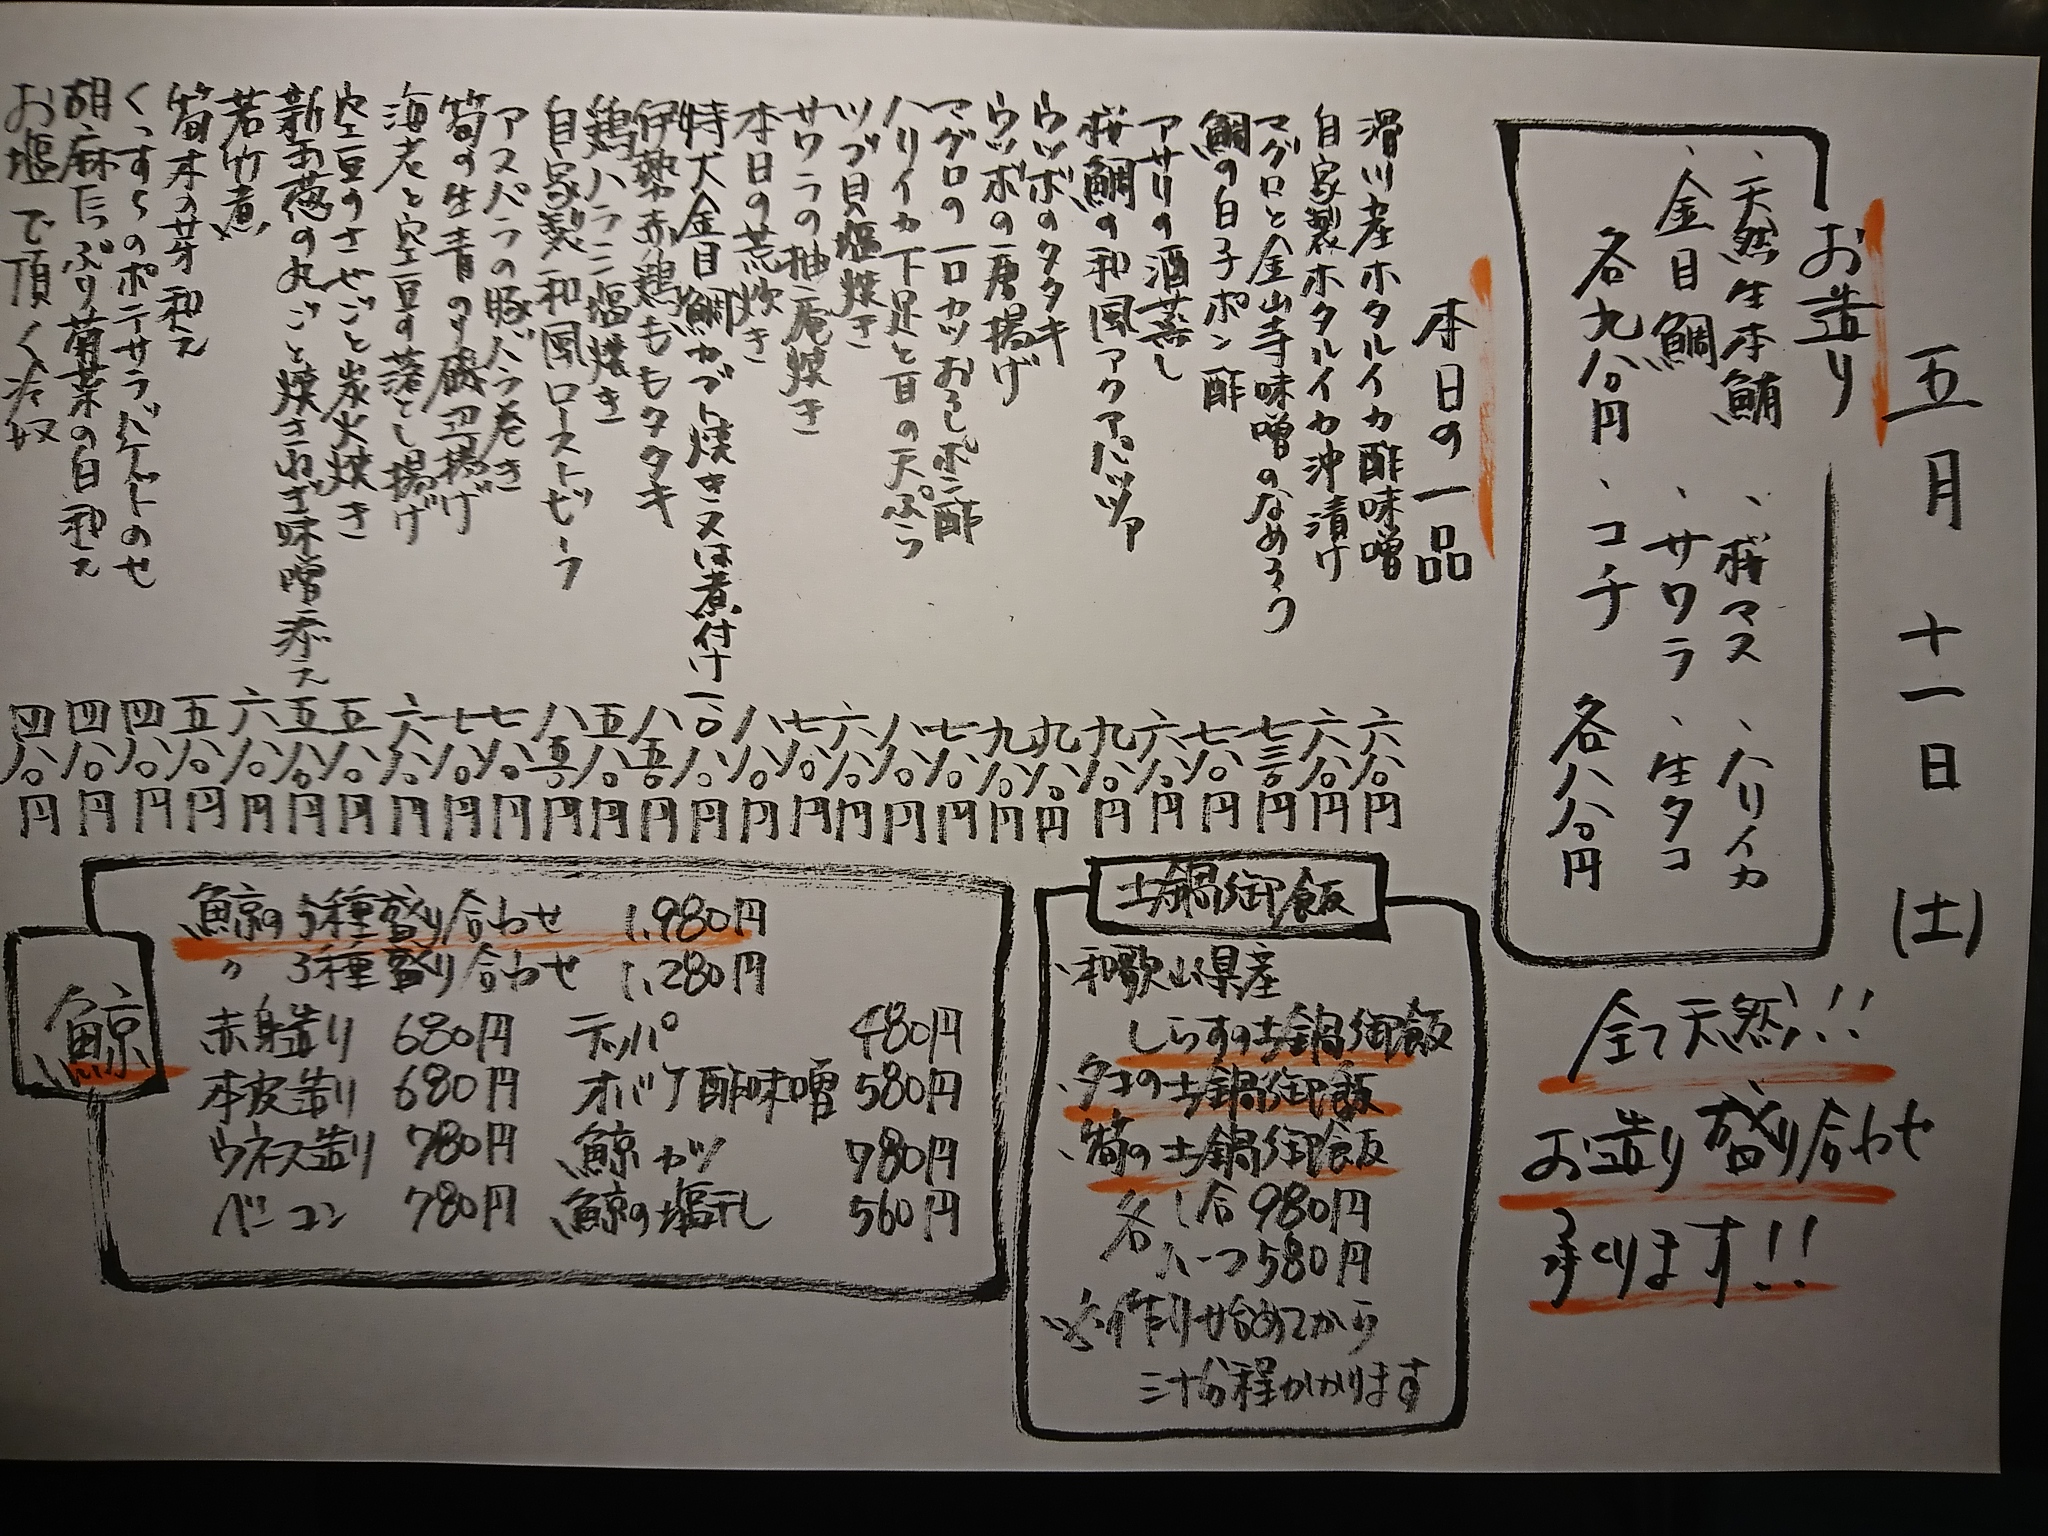 五月 十一日 (土)
お造り
、天然生本鮪 、桜マス 、ハリイカ
、金目鯛 、サワラ 、生タコ
各九八〇円 、コチ 各八八〇円
全て天然!!
お造り盛り合わせ
承ります!!
本日の一品
滑川産ホタルイカ酢味噌 六八〇円
自家製ホタルイカ沖漬け 六八〇円
マグロと金山寺味噌のなめろう 七三〇円
鯛の白子ポン酢 七八〇円
アサリの酒蒸し 六八〇円
桜鯛の和風アクアパッツァ 九八〇円
ウツボのタタキ 九八〇円
ウツボの唐揚げ 九八〇円
マグロの一口カツおろしポン酢 七八〇円
ハリイカ下足と百の天ぷら 八八〇円
ツブ貝塩焼き 六八〇円
サワラの柚庵焼き 七八〇円
本日の荒炊き 八八〇円
特大金目鯛カブト焼き又は煮付け 一八〇円
伊勢赤鶏ももタタキ 八五〇円
鶏ハラミ塩焼き 五八〇円
自家製和風ローストビーフ 八五〇円
アスパラの豚バラ巻き 七八〇円
筍の生青のり磯辺揚げ 七八〇円
海老と空豆の落とし揚げ 六八〇円
空豆のさやごと炭火焼き 五八〇円
新玉葱の丸ごと焼きねぎ味噌添え 五八〇円
若竹煮 六八〇円
筍木の芽和え 五八〇円
くんすらのポテサラバケットのせ 四八〇円
胡麻たっぷり菊菜の白和え 四八〇円
お塩で頂く冷奴 四八〇円
土鍋御飯
、和歌山県産
しらすの土鍋御飯
、タコの土鍋御飯
、筍の土鍋御飯
各 一合 980円
ハーフ 580円
※作り始めてから
三十分程かかります
鯨
鯨の5種盛り合わせ 1,980円
〃 3種盛り合わせ 1,280円
赤身造り 680円 テッパ 480円
本皮造り 680円 オバケ酢味噌 580円
ウネス造り 780円 鯨カツ 780円
ベーコン 780円 鯨の塩干し 560円